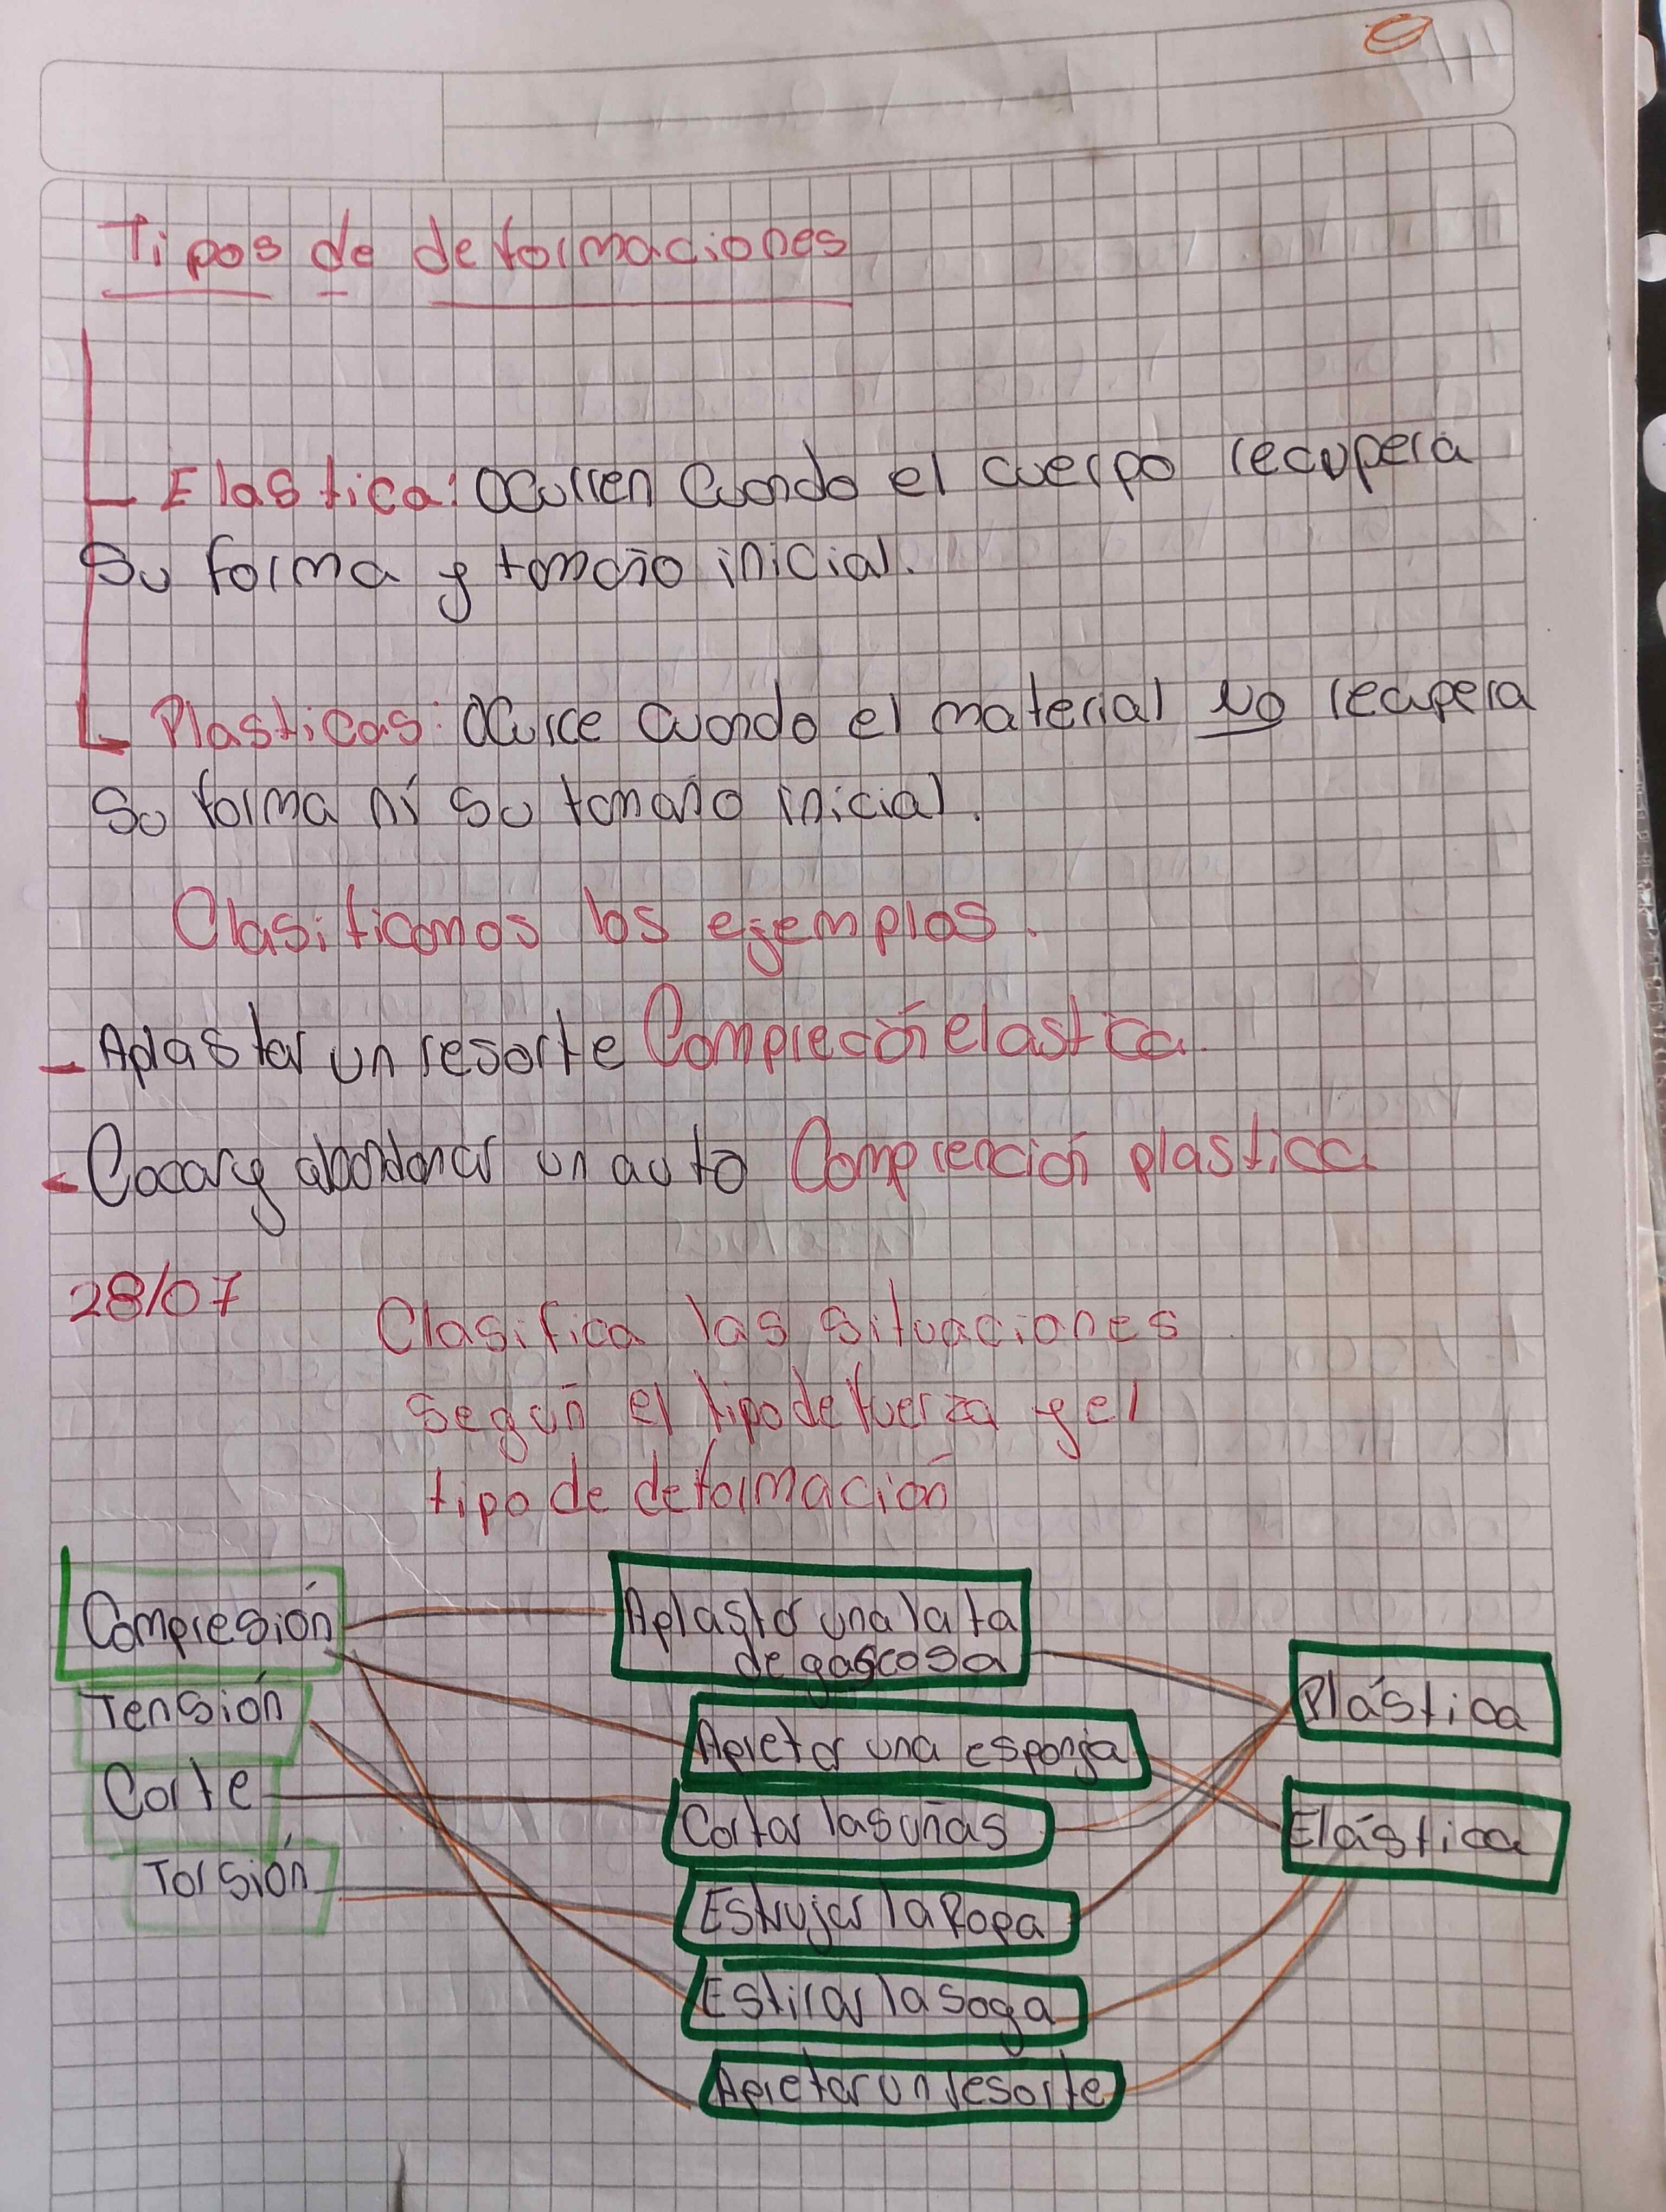 Tipos de deformaciones
Elastica: Ocurren cuando el cuerpo recupera
su forma y tamaño inicial.
Plasticas: Ocurre cuando el material no recupera
su forma ni su tamaño inicial.
Clasificamos los ejemplos.
- Aplastar un resorte Compreción elastica.
- y abondonar un auto Comprención plastica
28/07
Clasifica las situaciones
según el tipo de fuerza y el
tipo de deformación
Compresión
Tensión
Corte
Torsión
Aplastar una lata
de gascosa
Apretar una esponja
Cortar las uñas
Estrujar la Ropa
Estirar la soga
Apretar un resorte
Plástica
Elástica